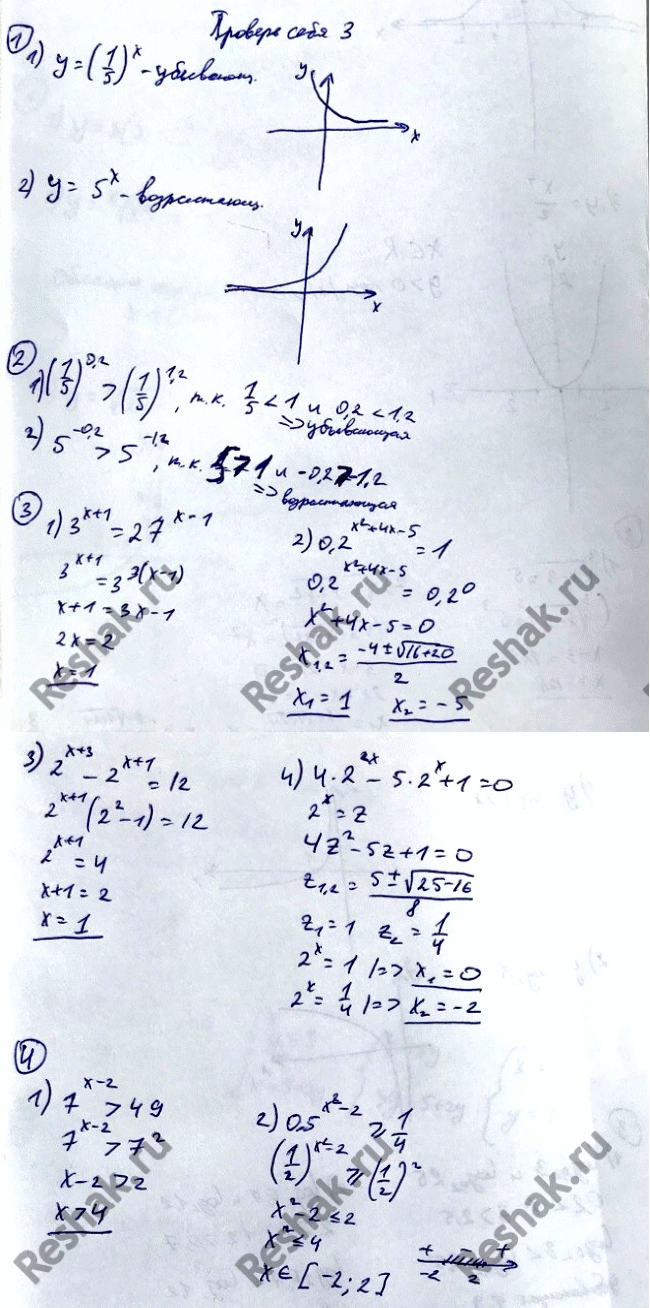 Проверь себя 3
① 1) y = (1/5)^x - убывающ.
y
x
2) y = 5^x - возрастающ.
y
x
②
1) (1/5)^0,2 > (1/5)^1,2, т.к. 1/5 < 1 и 0,2 < 1,2
=> убывающая
2) 5^-0,2 > 5^-1,2, т.к. 5 > 1 и -0,2 > -1,2
=> возрастающая
③
1) 3^(x+1) = 27^(x-1)
3^(x+1) = 3^3(x-1)
x+1 = 3x-1
2x = 2
x = 1
2) 0,2^(x²+4x-5) = 1
0,2^(x²+4x-5) = 0,2^0
x²+4x-5=0
x1,2 = (-4±√(16+20))/2
x1 = 1 x2 = -5
3) 2^(x+3) - 2^(x+1) = 12
2^(x+1) (2²-1) = 12
2^(x+1) = 4
x+1 = 2
x = 1
4) 4·2^(2x) - 5·2^x + 1 = 0
2^x = z
4z² - 5z + 1 = 0
z1,2 = (5±√(25-16))/8
z1 = 1 z2 = 1/4
2^x = 1 |=> x1 = 0
2^x = 1/4 |=> x2 = -2
④
1) 7^(x-2) > 49
7^(x-2) > 7²
x-2 > 2
x > 4
2) 0,5^(x²-2) ≥ 1/4
(1/2)^(x²-2) ≥ (1/2)²
x²-2 ≤ 2
x² ≤ 4
x ∈ [-2; 2]
+ - +
-2 2
Reshak.ru
Reshak.ru
Reshak.ru
Reshak.ru
Reshak.ru
Reshak.ru